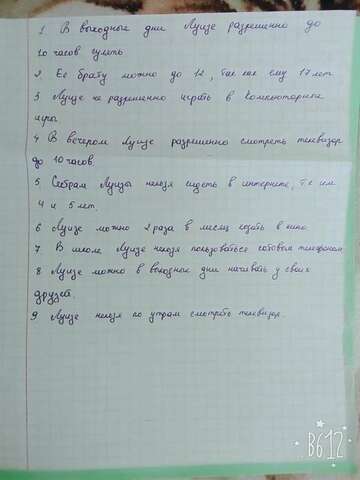 1 В выходные дни Луизе разрешенно до
10 часов гулять
2 Ее брату можно до 12, так как ему 17 лет
3 Луизе не разрешенно играть в Компьюторные
игры
4 В вечером Луизе разрешенно смотреть телевизор
до 10 часов.
5 Сёстрам Луизы нельзя сидеть в интернете, т.к им
4 и 5 лет.
6 Луизе можно 2 раза в месяц ходить в кино
7 В школе Луизе нельзя пользоваться сотовым телефоном
8 Луизе можно в выходные дни начивать у своих
друзей.
9 Луизе нельзя по утрам смотреть телевизор.
B612